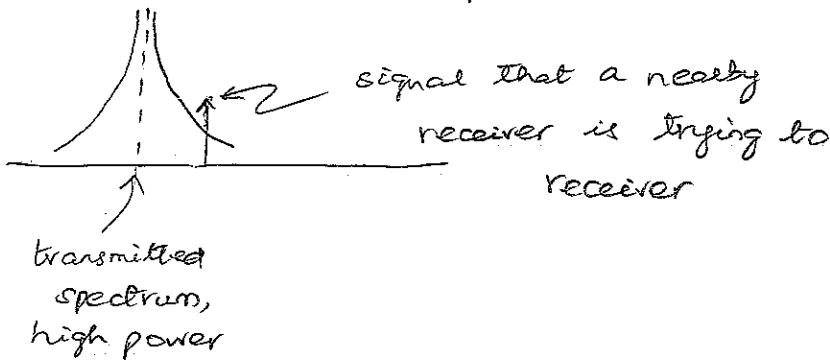 signal that a nearby
receiver is trying to
receiver
transmitted
spectrum,
high power